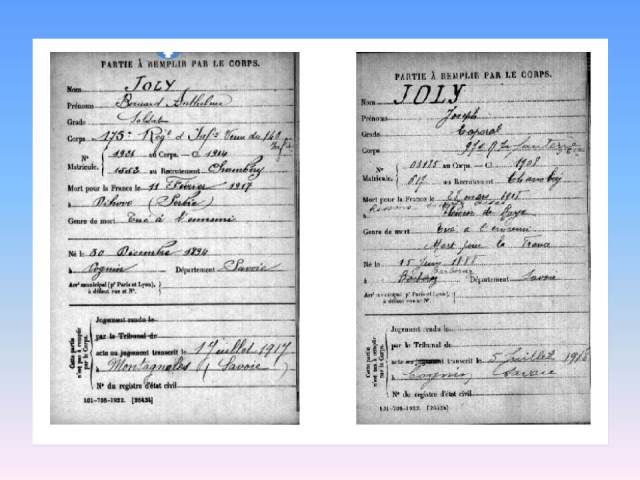 PARTIE À REMPLIR PAR LE CORPS.
Nom JOLY
Prénoms Bernard Anthelme
Grade Soldat
Corps 175e Régt d'Infie Venu du 140
Infie
N° 1921 au Corps. — Cl. 1914
Matricule. 1553 au Recrutement Chambéry
Mort pour la France le 11 Février 1917
à Dihovo (Serbie)
Genre de mort Tué à l'ennemi
Né le 30 Décembre 1894
à Cognin Département Savoie
Arrt municipal (pr Paris et Lyon),
à défaut rue et N°.
Cette partie
n'est pas à remplir
par le Corps.
Jugement rendu le
par le Tribunal de
acte ou jugement transcrit le 17 juillet 1917
à Montagnoles (Savoie)
N° du registre d'état civil
101-708-1922. [26434]
PARTIE À REMPLIR PAR LE CORPS.
Nom JOLY
Prénoms Joseph
Grade Caporal
Corps
N° 03185 au Corps. — Cl. 1908
Matricule. 617 au Recrutement Chambéry
Mort pour la France le 28 mars 1918
à
Genre de mort Tué à l'ennemi
Mort pour la France
Né le 15 Juin 1888
à Département Savoie
Arrt municipal (pr Paris et Lyon),
à défaut rue et N°.
Cette partie
n'est pas à remplir
par le Corps.
Jugement rendu le
par le Tribunal de
acte ou jugement transcrit le 5 Juillet 1918
à Cognin, Savoie
N° du registre d'état civil
101-708-1922. [26434]